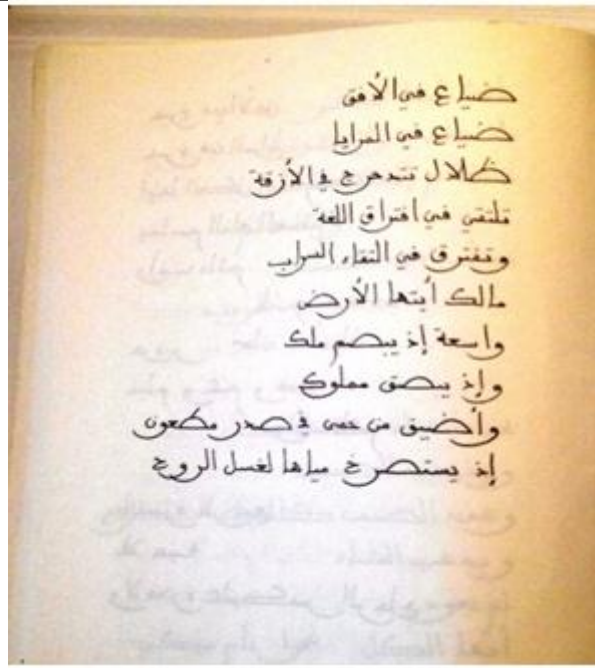 ضياع في الأفق
ضياع في المرايا
ظلال تتدحرج في الأزقة
تلتقي في افتراق اللغة
وتفترق في التقاء السراب
مالك أيتها الأرض
واسعة إذ يبصم ملك
وإذ يبصق مملوك
وأضيق من في صدر مطعون
إذ يستصرخ مياها لغسل الروح